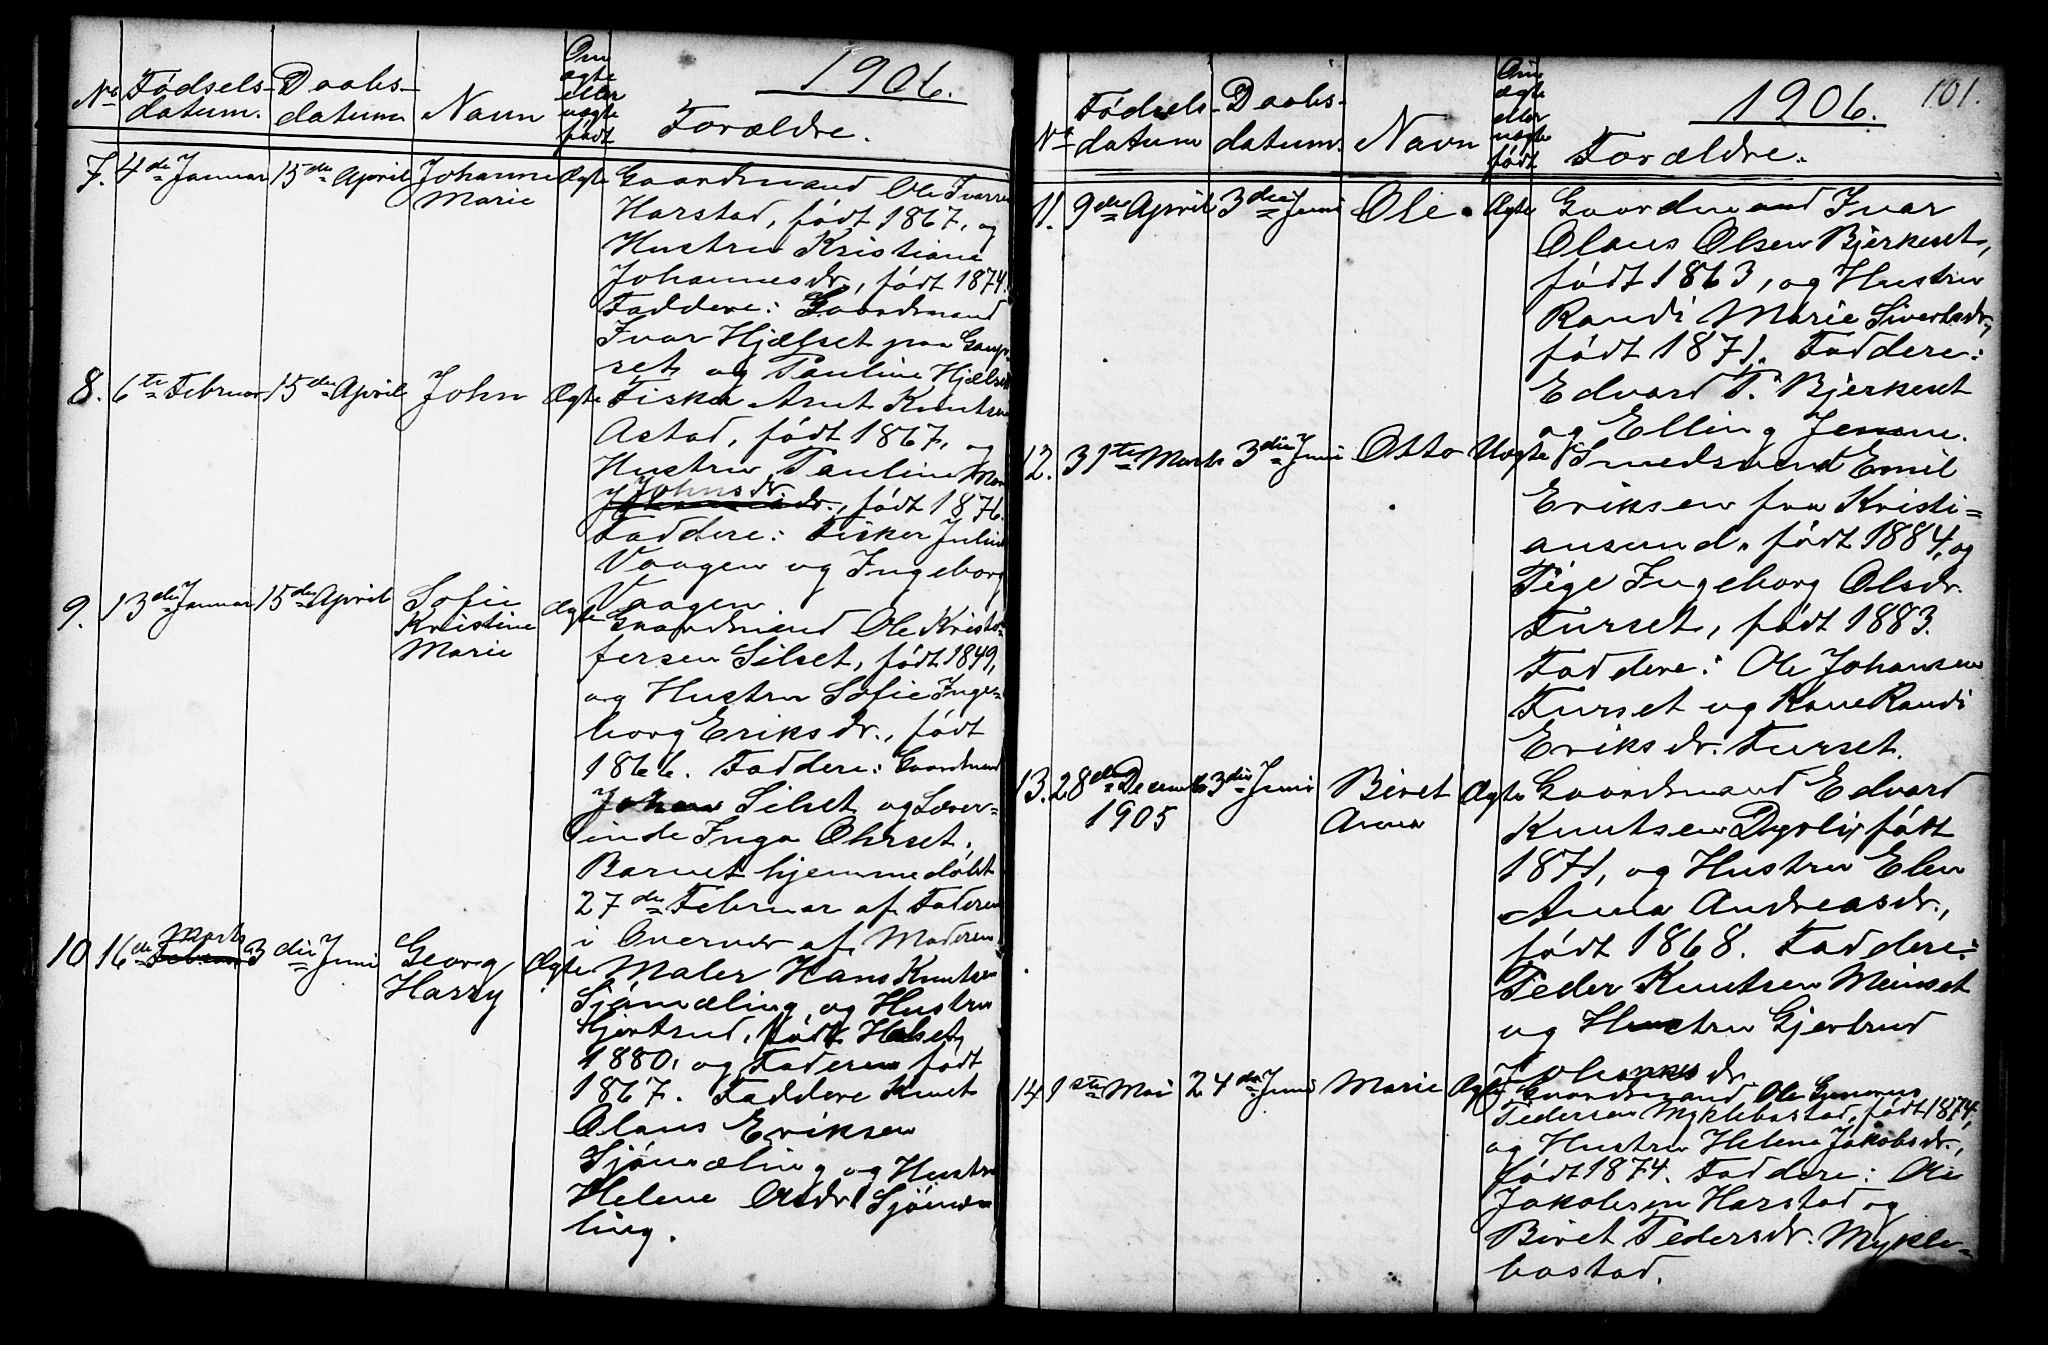 1906.
No Fødsels- datum. Daabs- datum Navn Om ægte eller uægte født Forældre.
7. 4de Januar 15de April Johanne Marie Ægte Gaardmand Ole Ivarsen
Harstad, født 1867, og
Hustru Kristiane
Johannesdr., født 1874.
Faddere: Gaardmand
Ivar Hjælset paa Gaup-
set og Pauline Hjælset
8. 6te Februar 15de April John Ægte Fisker Arnt Knutsen
Astad, født 1867, og
Hustru Pauline
Johnsdr., født 1876.
Faddere: Fisker Julius
Vaagen og Ingeborg
Vaagen
9. 13de Januar 15de April Sofie Kristine Marie Ægte Gaardmand Ole Kristo-
fersen Silset, født 1849,
og Hustru Sofie Inge-
borg Eriksdr., født
1866. Faddere: Gaardmand
Johan Silset og Lærer-
inde Inga Ohrset.
Barnet hjemmedøbt
27de Februar af Faderen
i Overvær af Moderen
10 16de Marts Februar 3die Juni Georg Harry Ægte Maler Hans Knutsen
Sjømæling og Hustru
Gjertrud, født Helset,
1880, og Faderen født
1867. Faddere Knut
Olaus Eriksen
Sjømæling og Hustru
Helene Olsdr. Sjømæ-
ling.
1906. 101.
No Fødsels- datum Daabs- datum. Navn Om ægte eller uægte født Forældre.
11. 9de April 3die Juni Ole Ægte Gaardmand Ivar
Olaus Olsen Bjerkeset,
født 1863, og Hustru
Randi Marie Sivertsdr.,
født 1871. Faddere:
Edvard T. Bjerkeset
og Elling
12. 31te Marts 3die Juni Otto Uægte Smedsvend Emil
Eriksen fra Kristi=
ansund, født 1884, og
Pige Ingeborg Olsdr.
Furset, født 1883.
Faddere: Ole Johansen
Furset og Kone Randi
Eriksdr. Furset.
13. 28de Decemb 1905 3die Juni Beret Anna Ægte Gaardmand Edvard
Knutsen født
1871, og Hustru Elen
Anna Andreasdr.,
født 1868. Faddere:
Peder Knutsen Meinset
og Hustru Gjertrud
Johannesdr.
14 1ste Mai 24de Juni Marie Ægte Gaardmand Ole Gunerius
Pedersen Myklebostad, født 1874,
og Hustru Helene Jakobsdr.,
født 1874. Faddere: Ole
Jakobsen Harstad og
Beret Pedersdr. Mykle-
bostad.